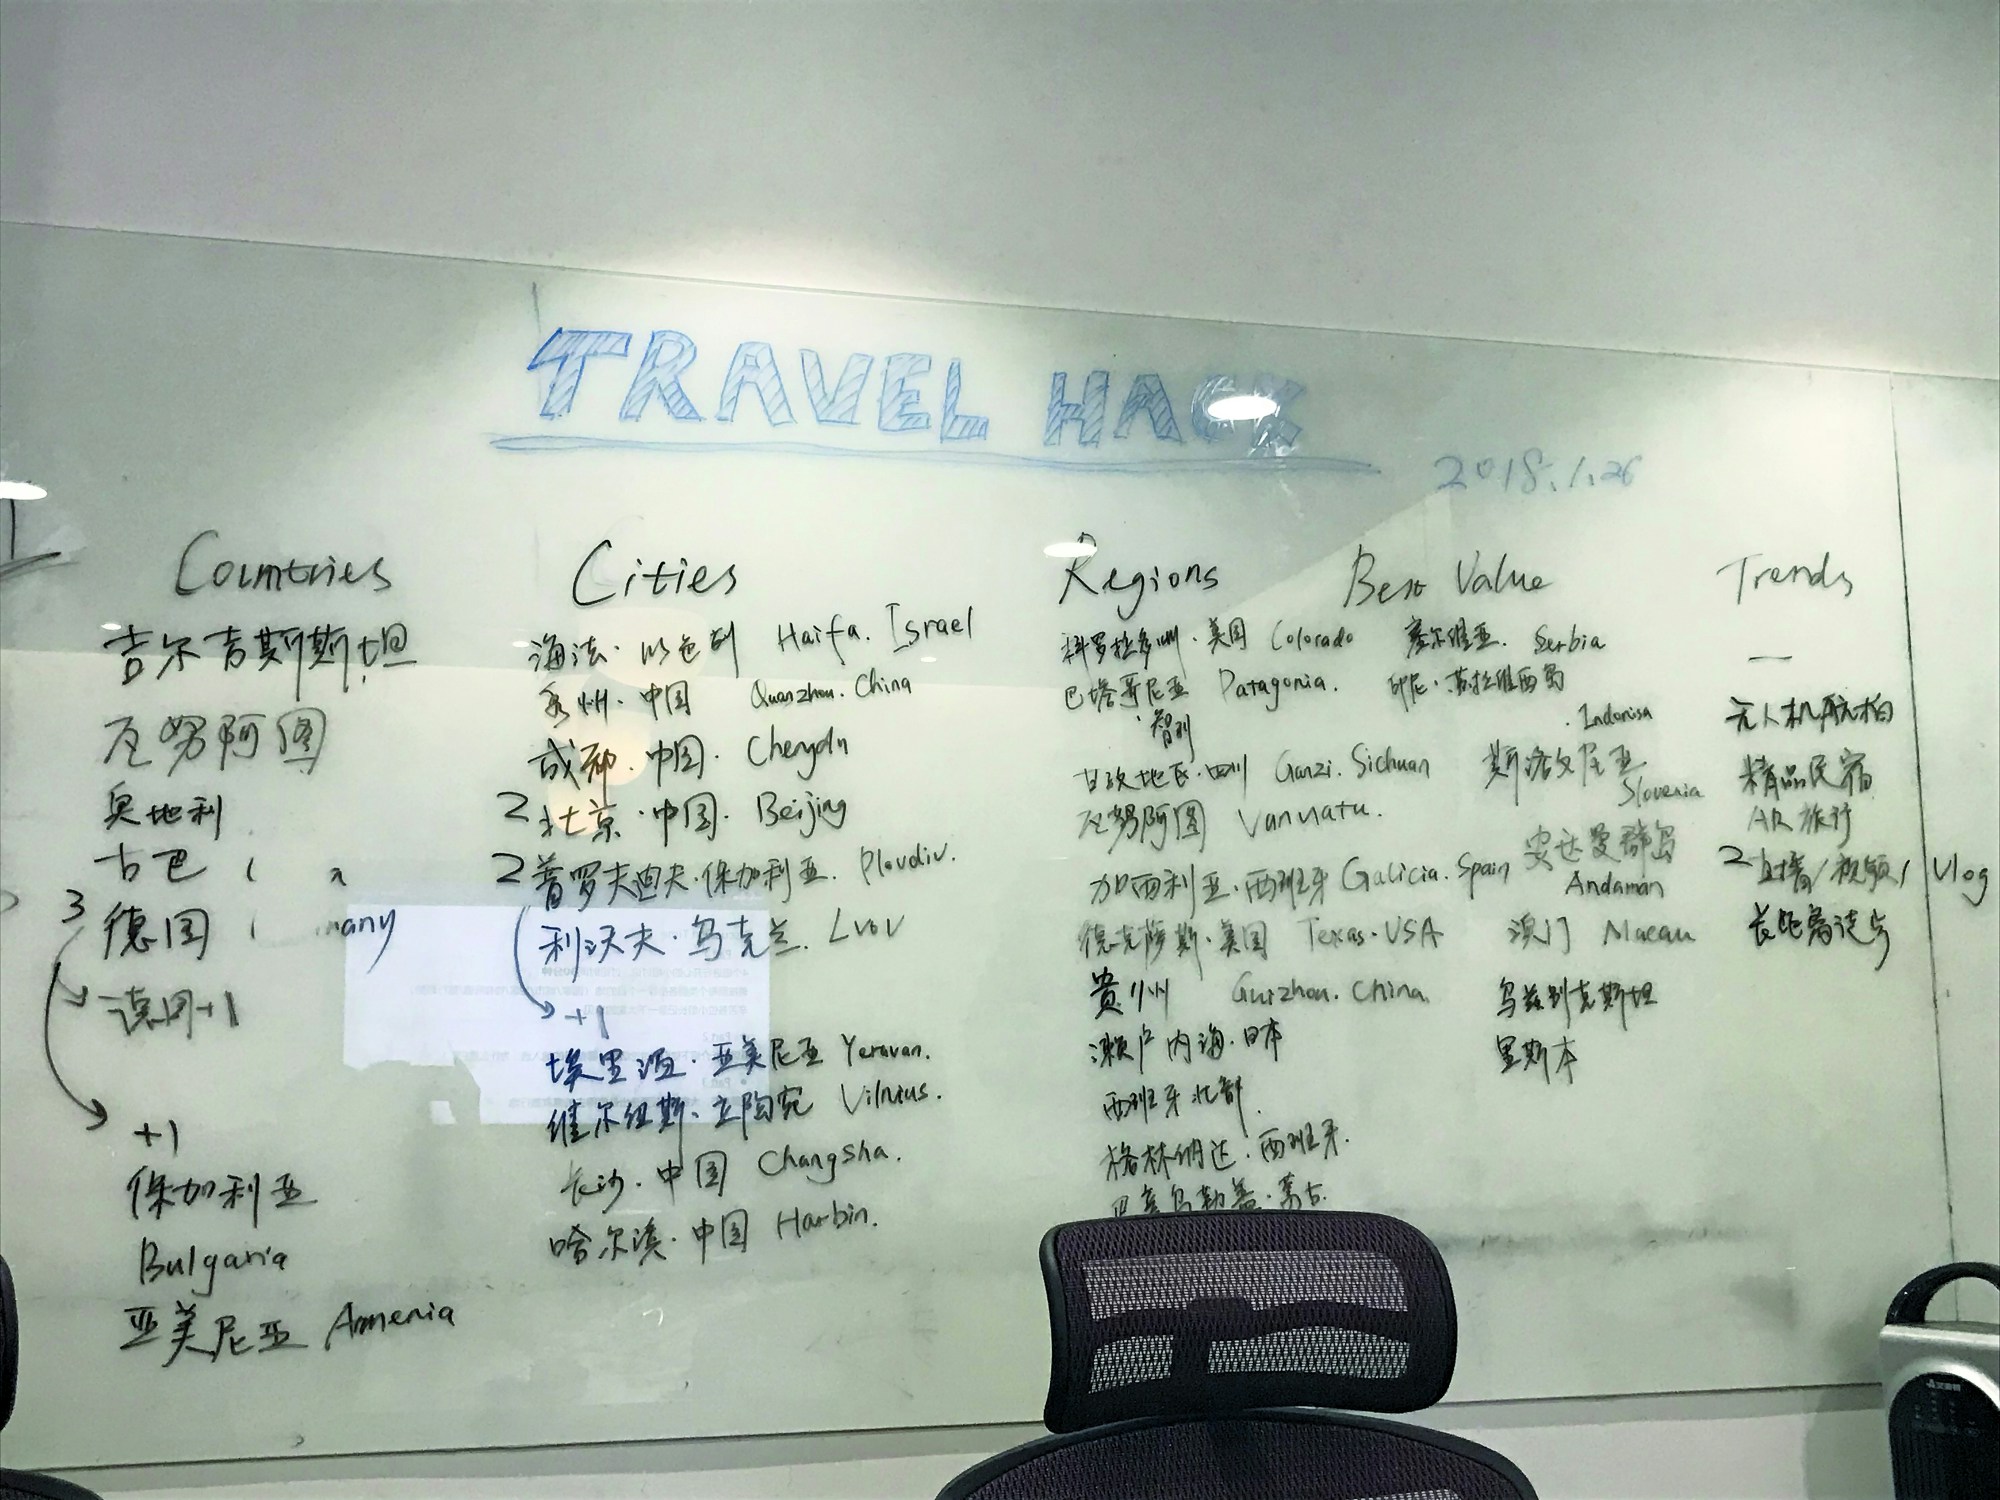 TRAVEL HACK
2018.1.26
Countries
吉尔吉斯斯坦
瓦努阿图
奥地利
古巴
3 德国 many
德国+1
+1
保加利亚
Bulgaria
亚美尼亚 Armenia
Cities
海法·以色列 Haifa. Israel
泉州·中国 Quanzhou. China
成都·中国· Chengdu
2 北京·中国· Beijing
2 普罗夫迪夫·保加利亚. Plovdiv.
利沃夫·乌克兰. Lvov
+1
埃里温·亚美尼亚 Yeravan.
维尔纽斯·立陶宛 Vilnius.
长沙·中国 Changsha.
哈尔滨·中国 Harbin.
Regions
科罗拉多州·美国 Colorado
巴塔哥尼亚 Patagonia.
·智利
甘孜地区·四川 Ganzi. Sichuan
瓦努阿图 Vanuatu.
加西利亚·西班牙 Galicia. Spain
德克萨斯·美国 Texas·USA
贵州 Guizhou. China
濑户内海·日本
西班牙北部.
格林纳达·西班牙.
Best Value
塞尔维亚. Serbia
印尼·苏拉维西岛
. Indonisa
斯洛文尼亚
Slovenia
安达曼群岛
Andaman
澳门 Macau
乌兹别克斯坦
里斯本
Trends
无人机航拍
精品民宿
AR旅行
2 直播/视频/Vlog
长距离徒步